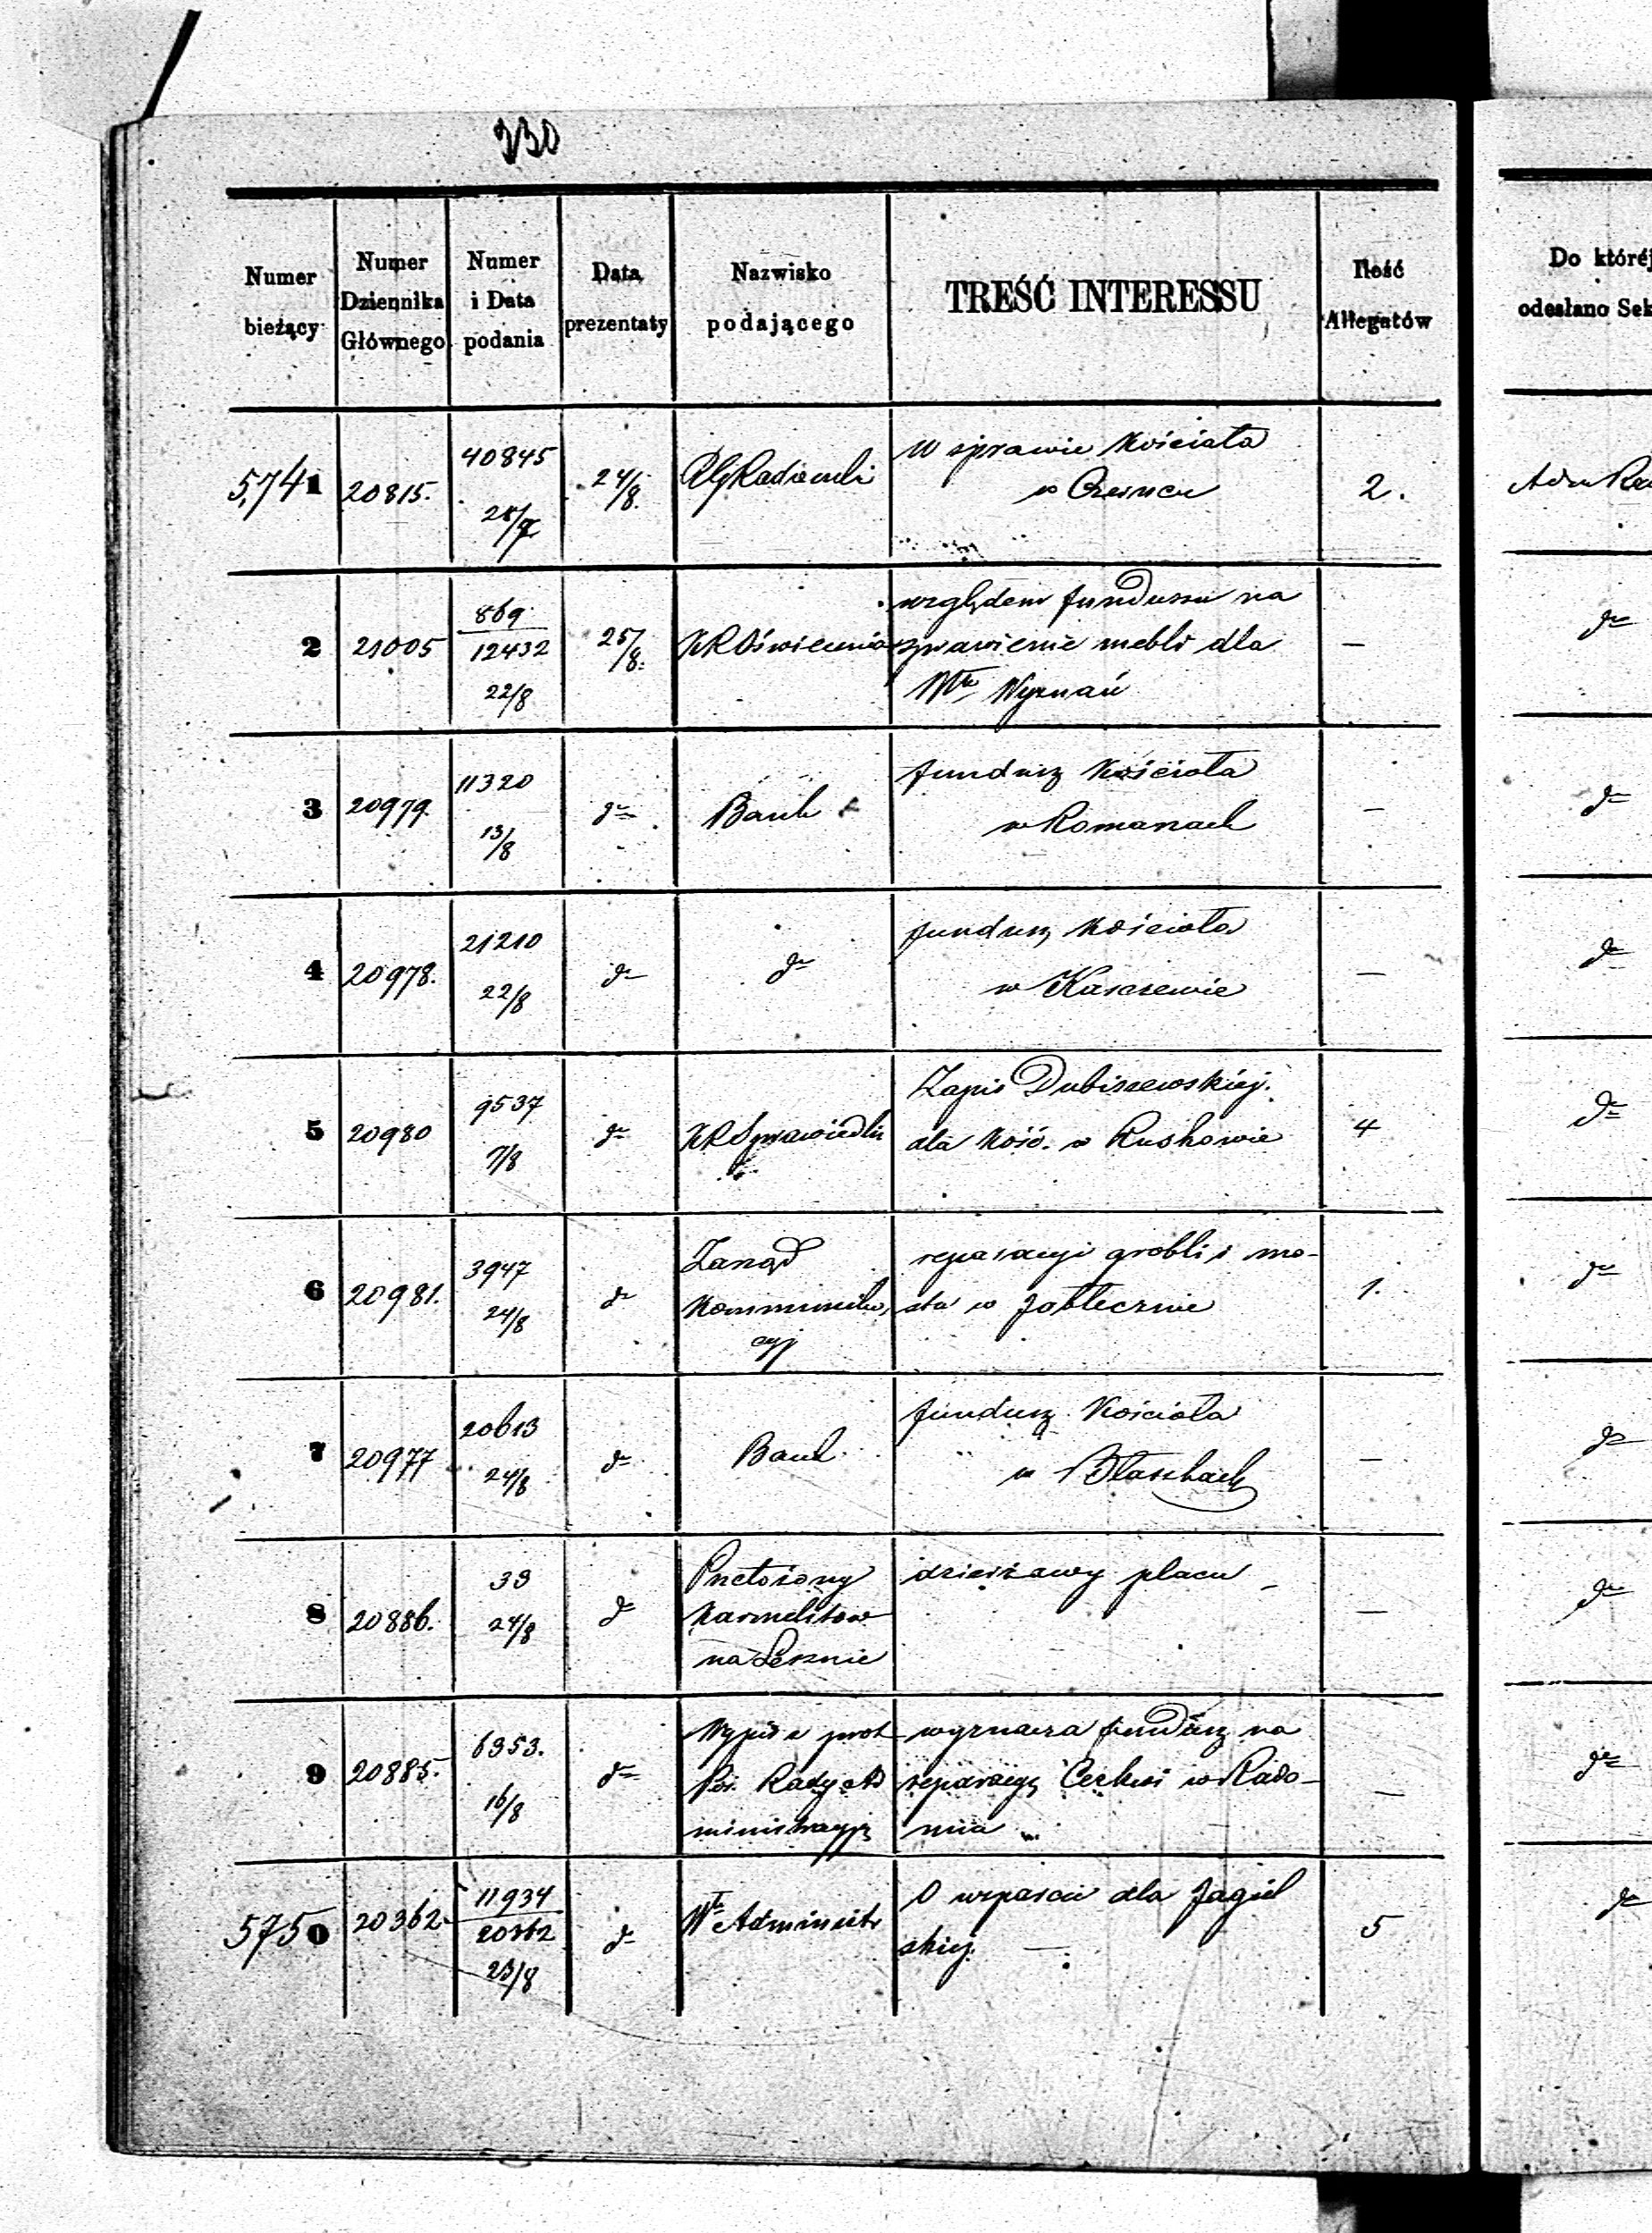 330
Numer bieżący
Numer Dziennika Głównego
Numer i Data podania
Data prezentaty
Nazwisko podającego
TREŚĆ INTERESSU
Ilość Allegatów
Do któréj
odesłano Sek
5,741 20815. 40845 24/8. 2.
W sprawie Kościoła
w
2 21005 869 12432 22/8 25/8. KROświecenia —
względem funduszu na
sprawienie mebli dla
Włu Wyznań
dto
3 20979. 11320 13/8 dto Bank —
fundusz Kościoła
w Romanach
dto
4 20978. 21210 22/8 dto dto —
fundusz Kościoła
w Kaszewie
dto
5 20980 9537 7/8 dto KRSprawiedli 4
Zapis Dubiszewskiej.
dla Kość. w Ruskowie
dto
6 20981. 3947 24/8 dto 1.
Zarząd
Kommunika
cyj
reparacyi grobli i mo-
stu w Jabłecznie
dto
7 20977 20613 24/8 dto Bank —
fundusz Kościoła
w Błaszkach
dto
8 20886. 33 24/8 dto —
Przełożony
Karmelitów
na Lesznie
dzierżawy placu
dto
9 20885. 6353. 16/8 dto —
Wypis z prot
Pos. Rady Ad
ministracyj
wyznacza fundusz na
reparacyę Cerkwi w Rado-
miu
dto
5750 20362 11934 20362 23/8 dto Wł Administr 5
O wsparcie dla Jagiel
skiej. —
dto